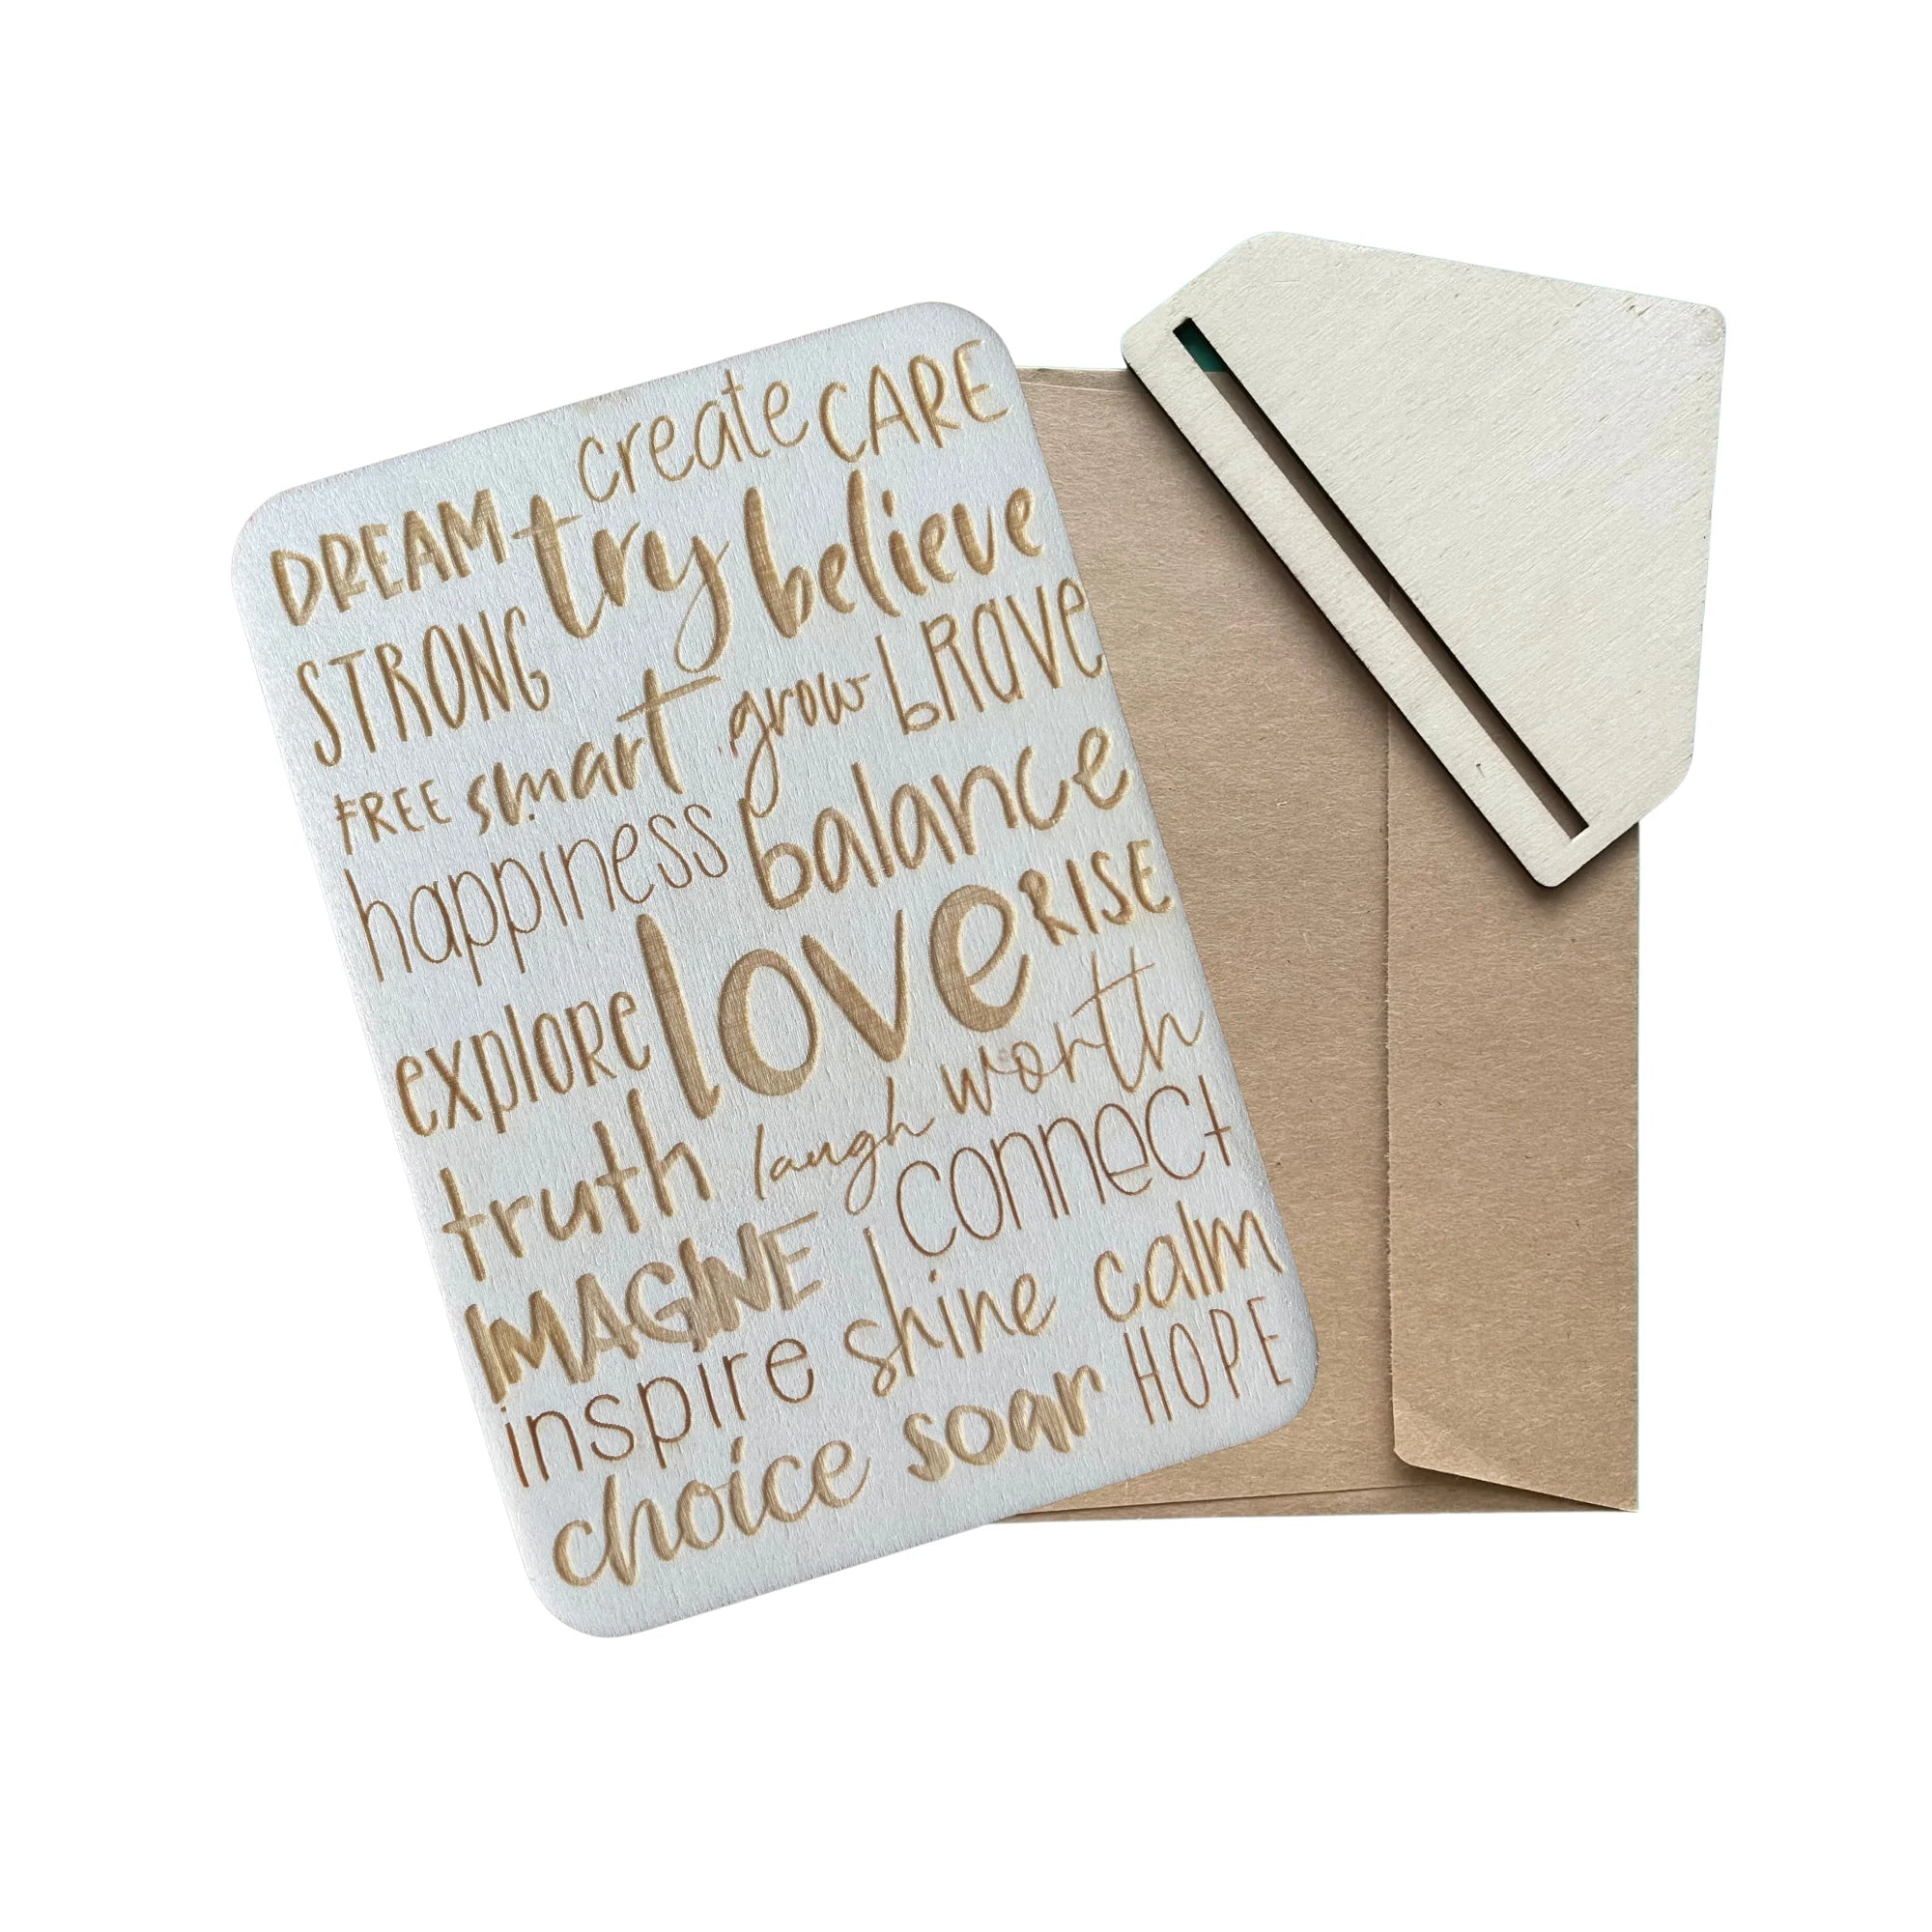 create CARE
DREAM try believe
STRONG grow bRAVE
FREE smart balance
happiness love RISE
explore worth
truth laugh connect
IMAGINE shine calm
inspire soar HOPE
choice